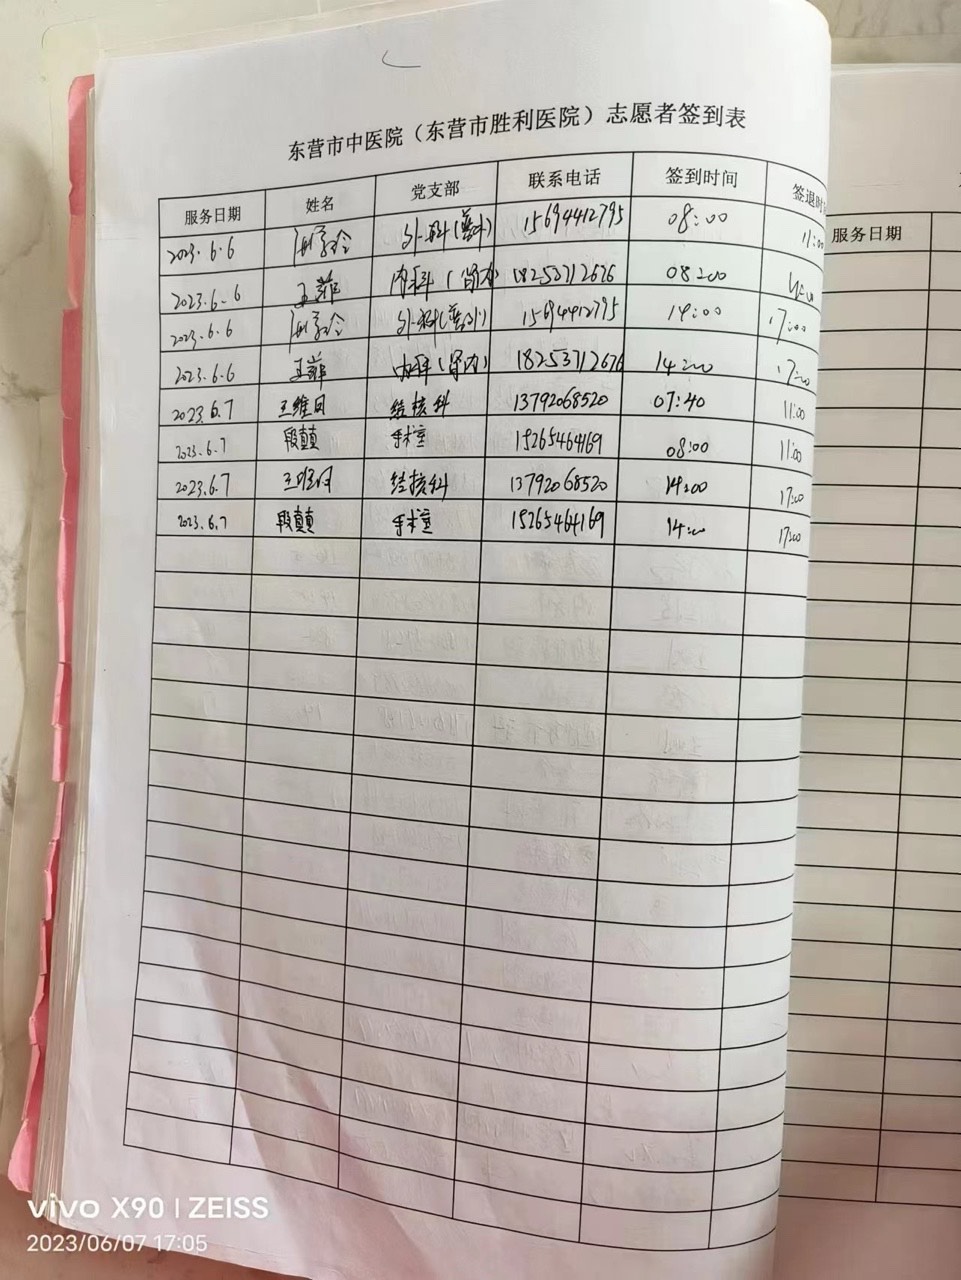 东营市中医院（东营市胜利医院）志愿者签到表
服务日期 姓名 党支部 联系电话 签到时间 签退时
2023.6.6 外科(普外) 15694412795 08:00 11:00
2023.6.6 王菲 内科(肾内) 18253712676 08:00
2023.6.6 外科(普外) 15694412795 14:00 17:00
2023.6.6 王菲 内科(肾内) 18253712676 14:00 17:00
2023.6.7 王维同 结核科 13792068520 07:40 11:00
2023.6.7 段颠 手术室 15265464169 08:00 11:00
2023.6.7 结核科 13792068520 14:00 17:00
2023.6.7 段颠 手术室 15265464169 14:00 17:00
服务日期
vivo X90 | ZEISS
2023/06/07 17:05